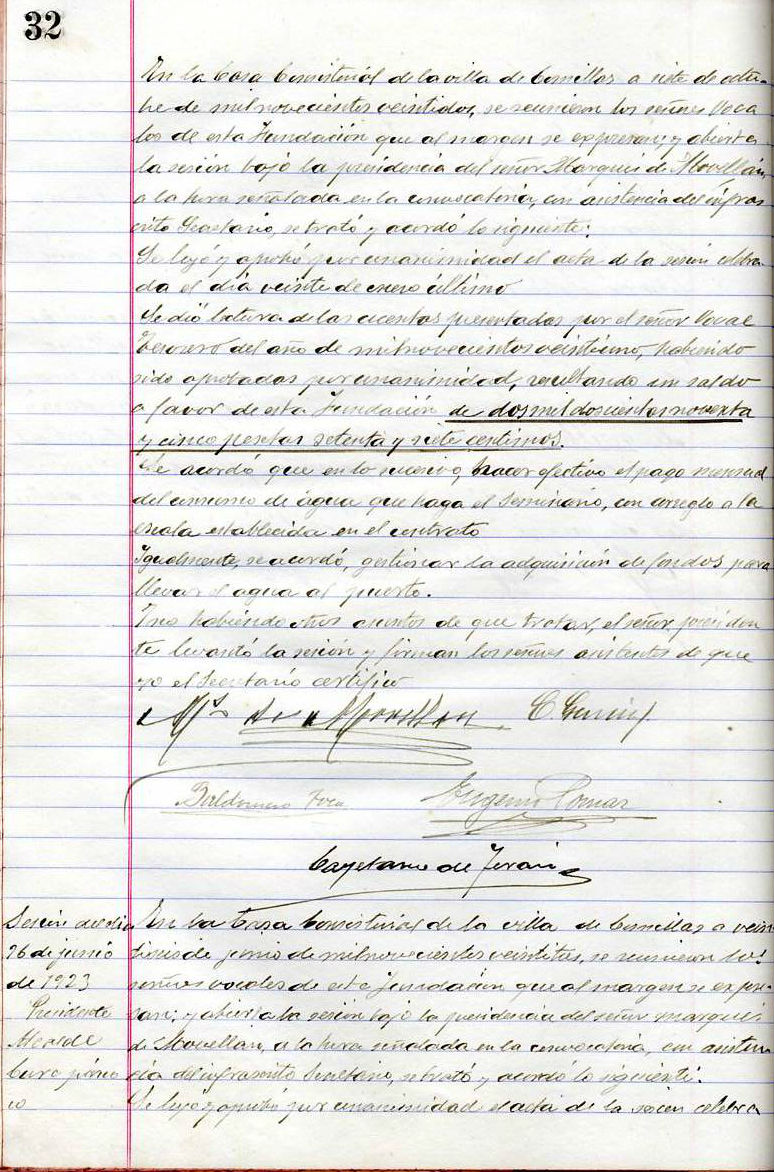 32
En la Casa Consistorial de la villa de Comillas a siete de octu-
bre de mil novecientos veintidos, se reunieron los señores Voca
les de esta Fundación que al margen se expresan; y abierta
la sesión bajo la presidencia del señor Marqués de Movellán,
a la hora señalada en la convocatoria, con asistencia del infras
crito Secretario, se trató y acordó lo siguiente:
Se leyó y aprobó por unanimidad el acta de la sesión celebra-
da el día veinte de enero último
Se dió lectura de las cuentas presentadas por el señor Vocal
Tesorero del año de mil novecientos veintiuno, habiendo
sido aprobadas por unanimidad, resultando un saldo
a favor de esta Fundación de dos mil doscientas noventa
y cinco pesetas setenta y siete centimos.
Se acordó que en lo sucesivo, hacer efectivo el pago mensual
del consumo de agua que haga el Seminario, con arreglo a la
escala establecida en el contrato
Igualmente, se acordó, gestionar la adquisición de fondos para
llevar el agua al puerto.
Y no habiendo otros asuntos de que tratar, el señor presiden
te levantó la sesión y firman los señores asistentes de que
yo el Secretario certifico
Ms de Movellan C.
Baldomero Eugenio Pomar
Cayetano de Teran
Sesión del día
26 de junio
de 1923
Presidente
Alcalde
Cura párro
co
En la Casa Consistorial de la villa de Comillas a vein
tiseis de junio de mil novecientos veintitres, se reunieron los
señores vocales de esta Fundación que al margen se expre-
san; y abierta la sesión bajo la presidencia del señor marqués
de Movellan, a la hora señalada en la convocatoria, con asisten
cia del infrascrito Secretario, se trató y acordó lo siguiente:
Se leyó y aprobó por unanimidad el acta de la sesión celebra